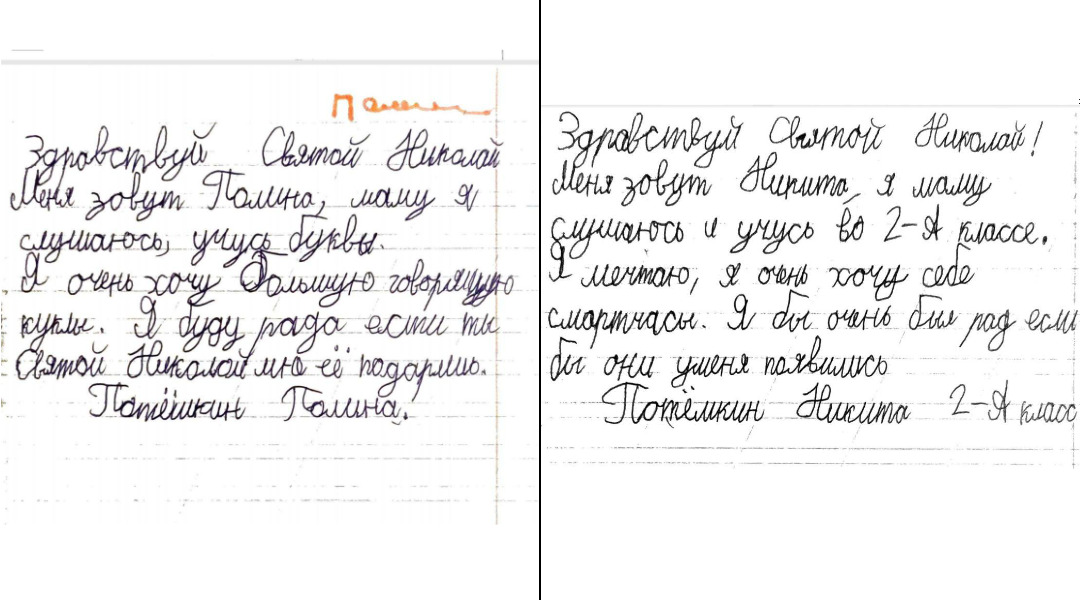 Полин
Здравствуй Святой Николай
Меня зовут Полина, маму я
слушаюсь, учусь буквы.
Я очень хочу большую говорящую
куклы. Я буду рада если ты
Святой Николай мне её подаришь.
Потёмкин Полина.
Здравствуй Святой Николай!
Меня зовут Никита, я маму
слушаюсь и учусь во 2-А классе.
Я мечтаю, я очень хочу себе
смартчасы. Я бы очень был рад если
бы они уменя появились
Потёмкин Никита 2-А класс